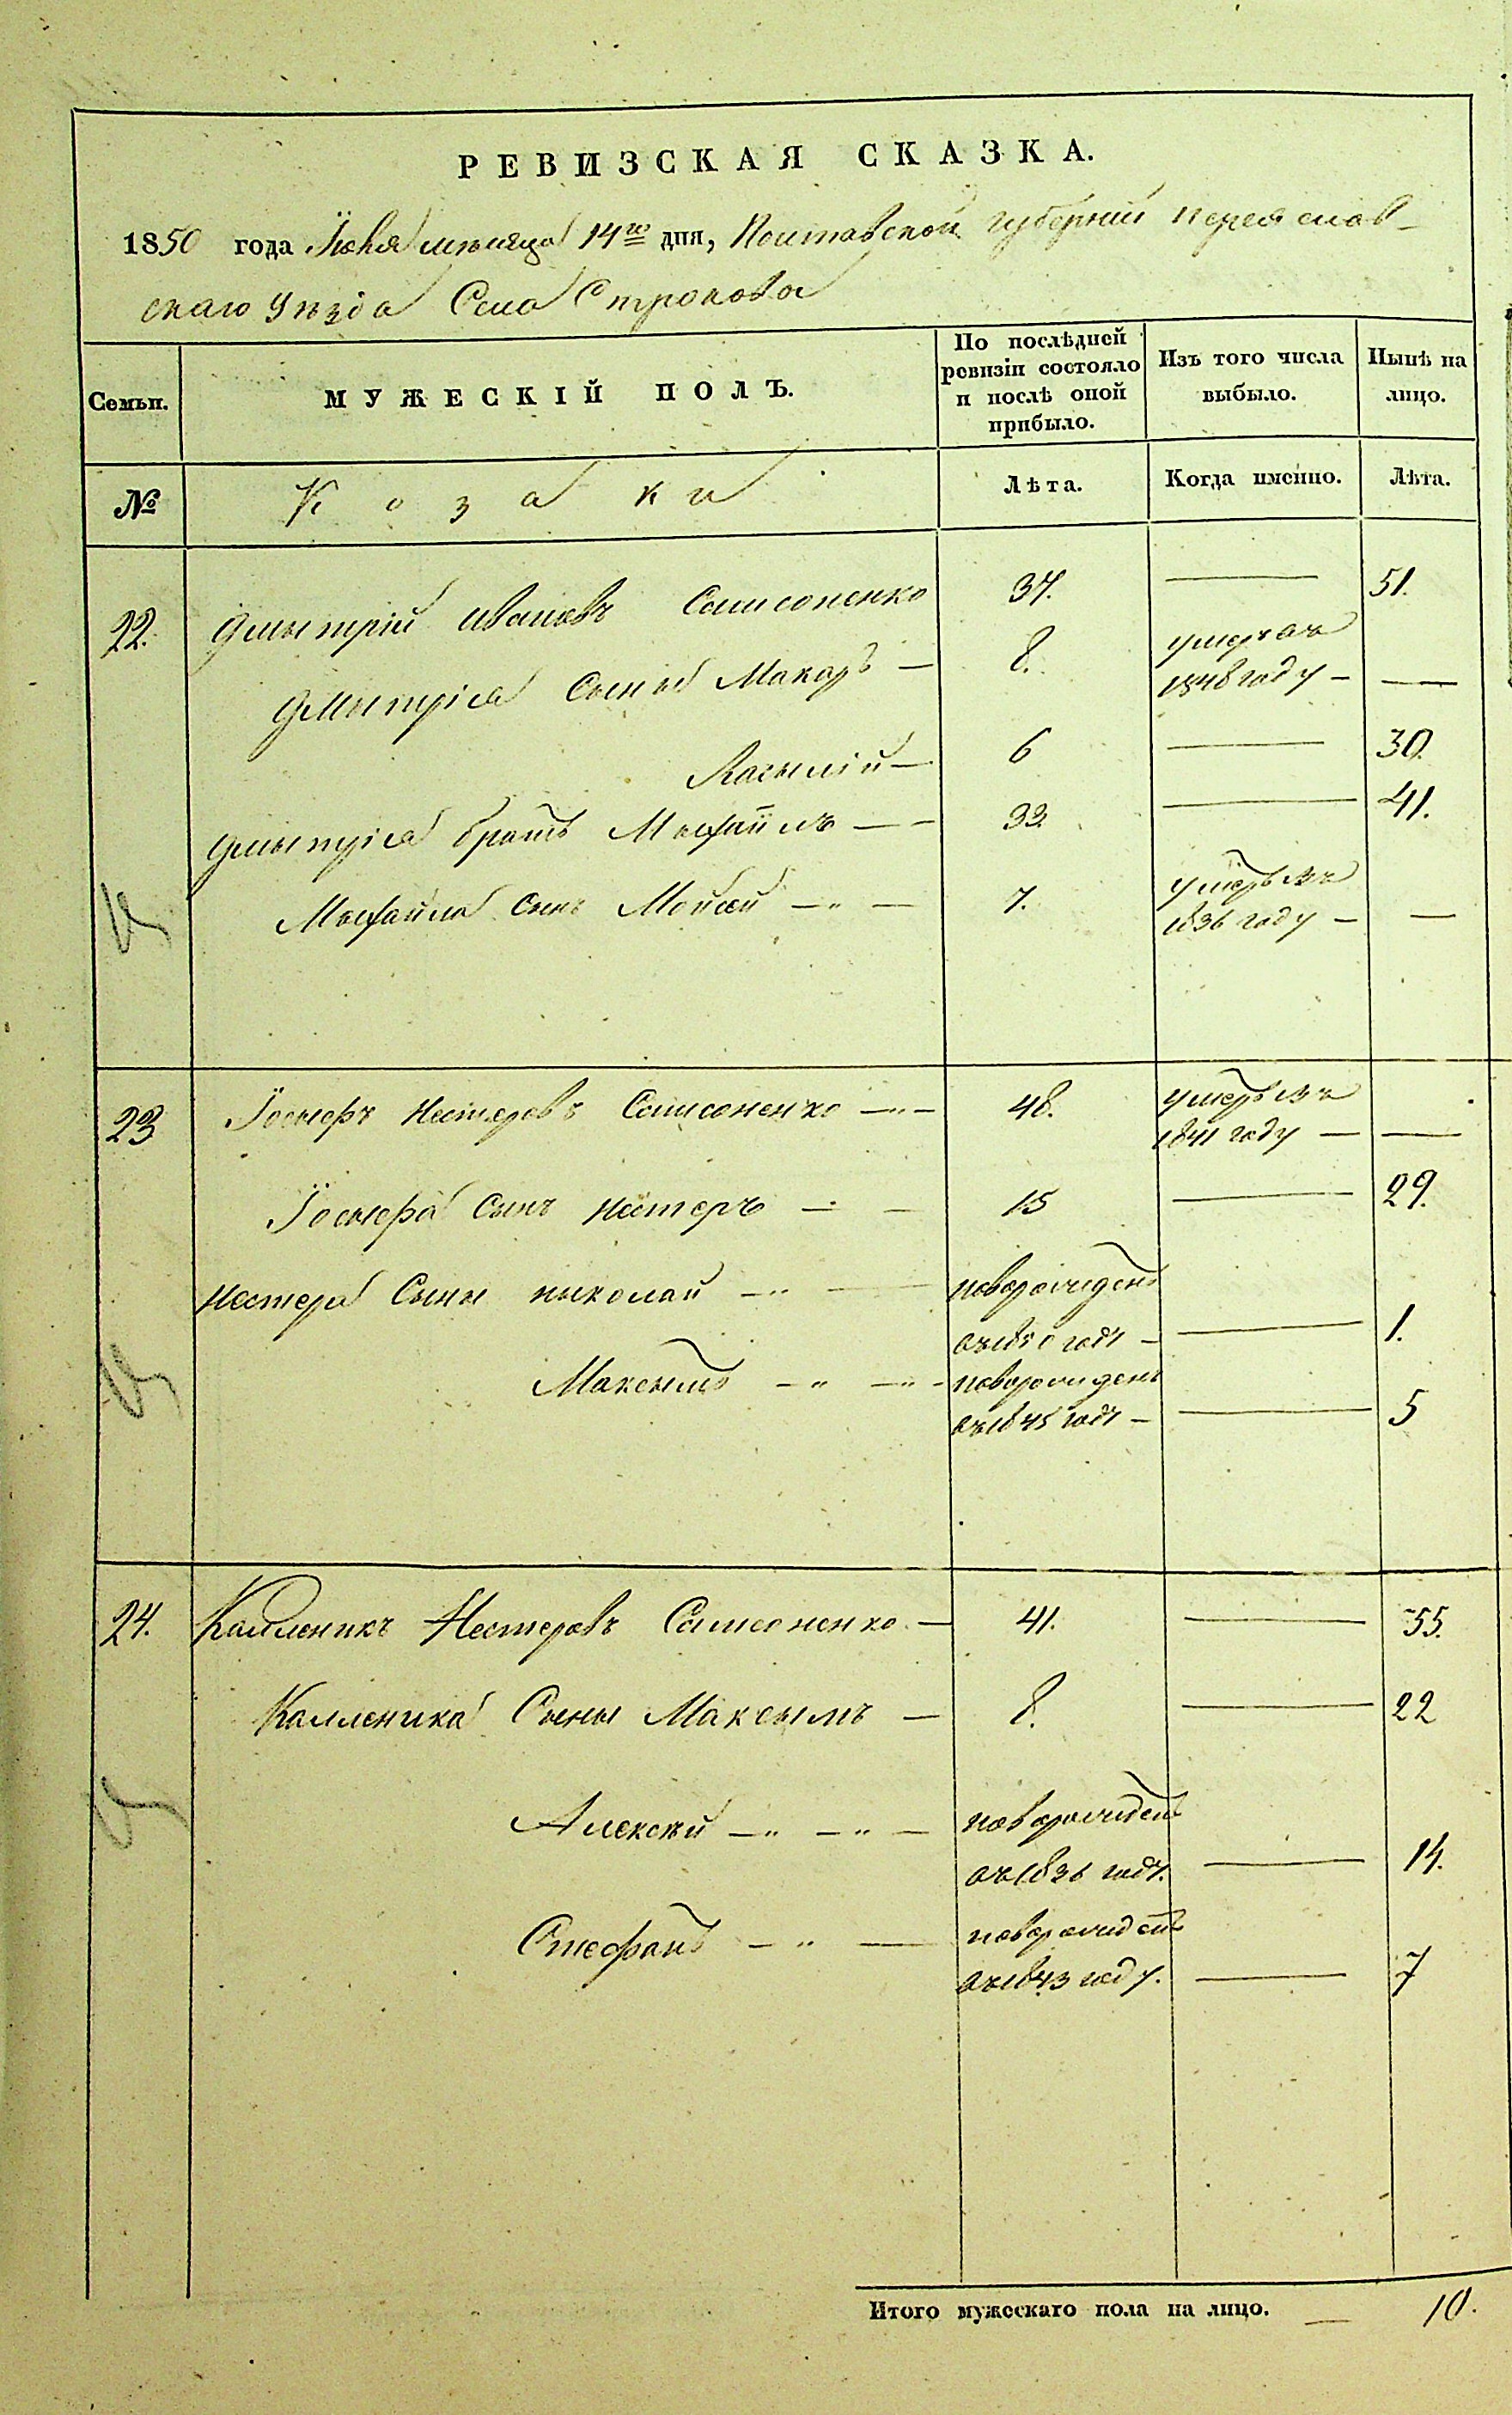 РЕВИЗСКАЯ СКАЗКА.
1850 года мѣсяца 14го дня, Полтавской губерніи Переяслав-
скаго уѣзда Села Строкова
Семьи.
МУЖЕСКІЙ ПОЛЪ.
По послѣдней ревизіи состояло и послѣ оной прибыло.
Изъ того числа выбыло.
Нынѣ на лицо.
№
Козаки
Лѣта.
Когда именно.
Лѣта.
22. Дмытрій Ивановъ Самсоненко 37. — 51.
Дмытрія Сыны Макаръ — 8. умеръ въ
1848 году — —
Васылій — 6 — 30.
Дмытрія братъ Мыхайлъ — 33. — 41.
Мыхайла Сынъ Мойсей — 7. умеръ въ
1836 году — —
23 Іосыфъ Нестеровъ Самсоненко — 48. умеръ въ
1841 году — —
Іосыфа Сынъ Нестеръ — 15 — 29.
Нестера Сыны Николай — новорожденъ
въ 1850 году — — 1.
Максымъ — новорожденъ
въ 1845 году — — 5
24. Калленикъ Нестеровъ Самсоненко — 41. — 55.
Калленика Сыны Максымъ — 8. — 22
Алексѣй — новорожденъ
въ 1836 году. — 14.
Стефанъ — новорожденъ
въ 1843 году. — 7
Итого мужескаго пола на лицо. — 10.